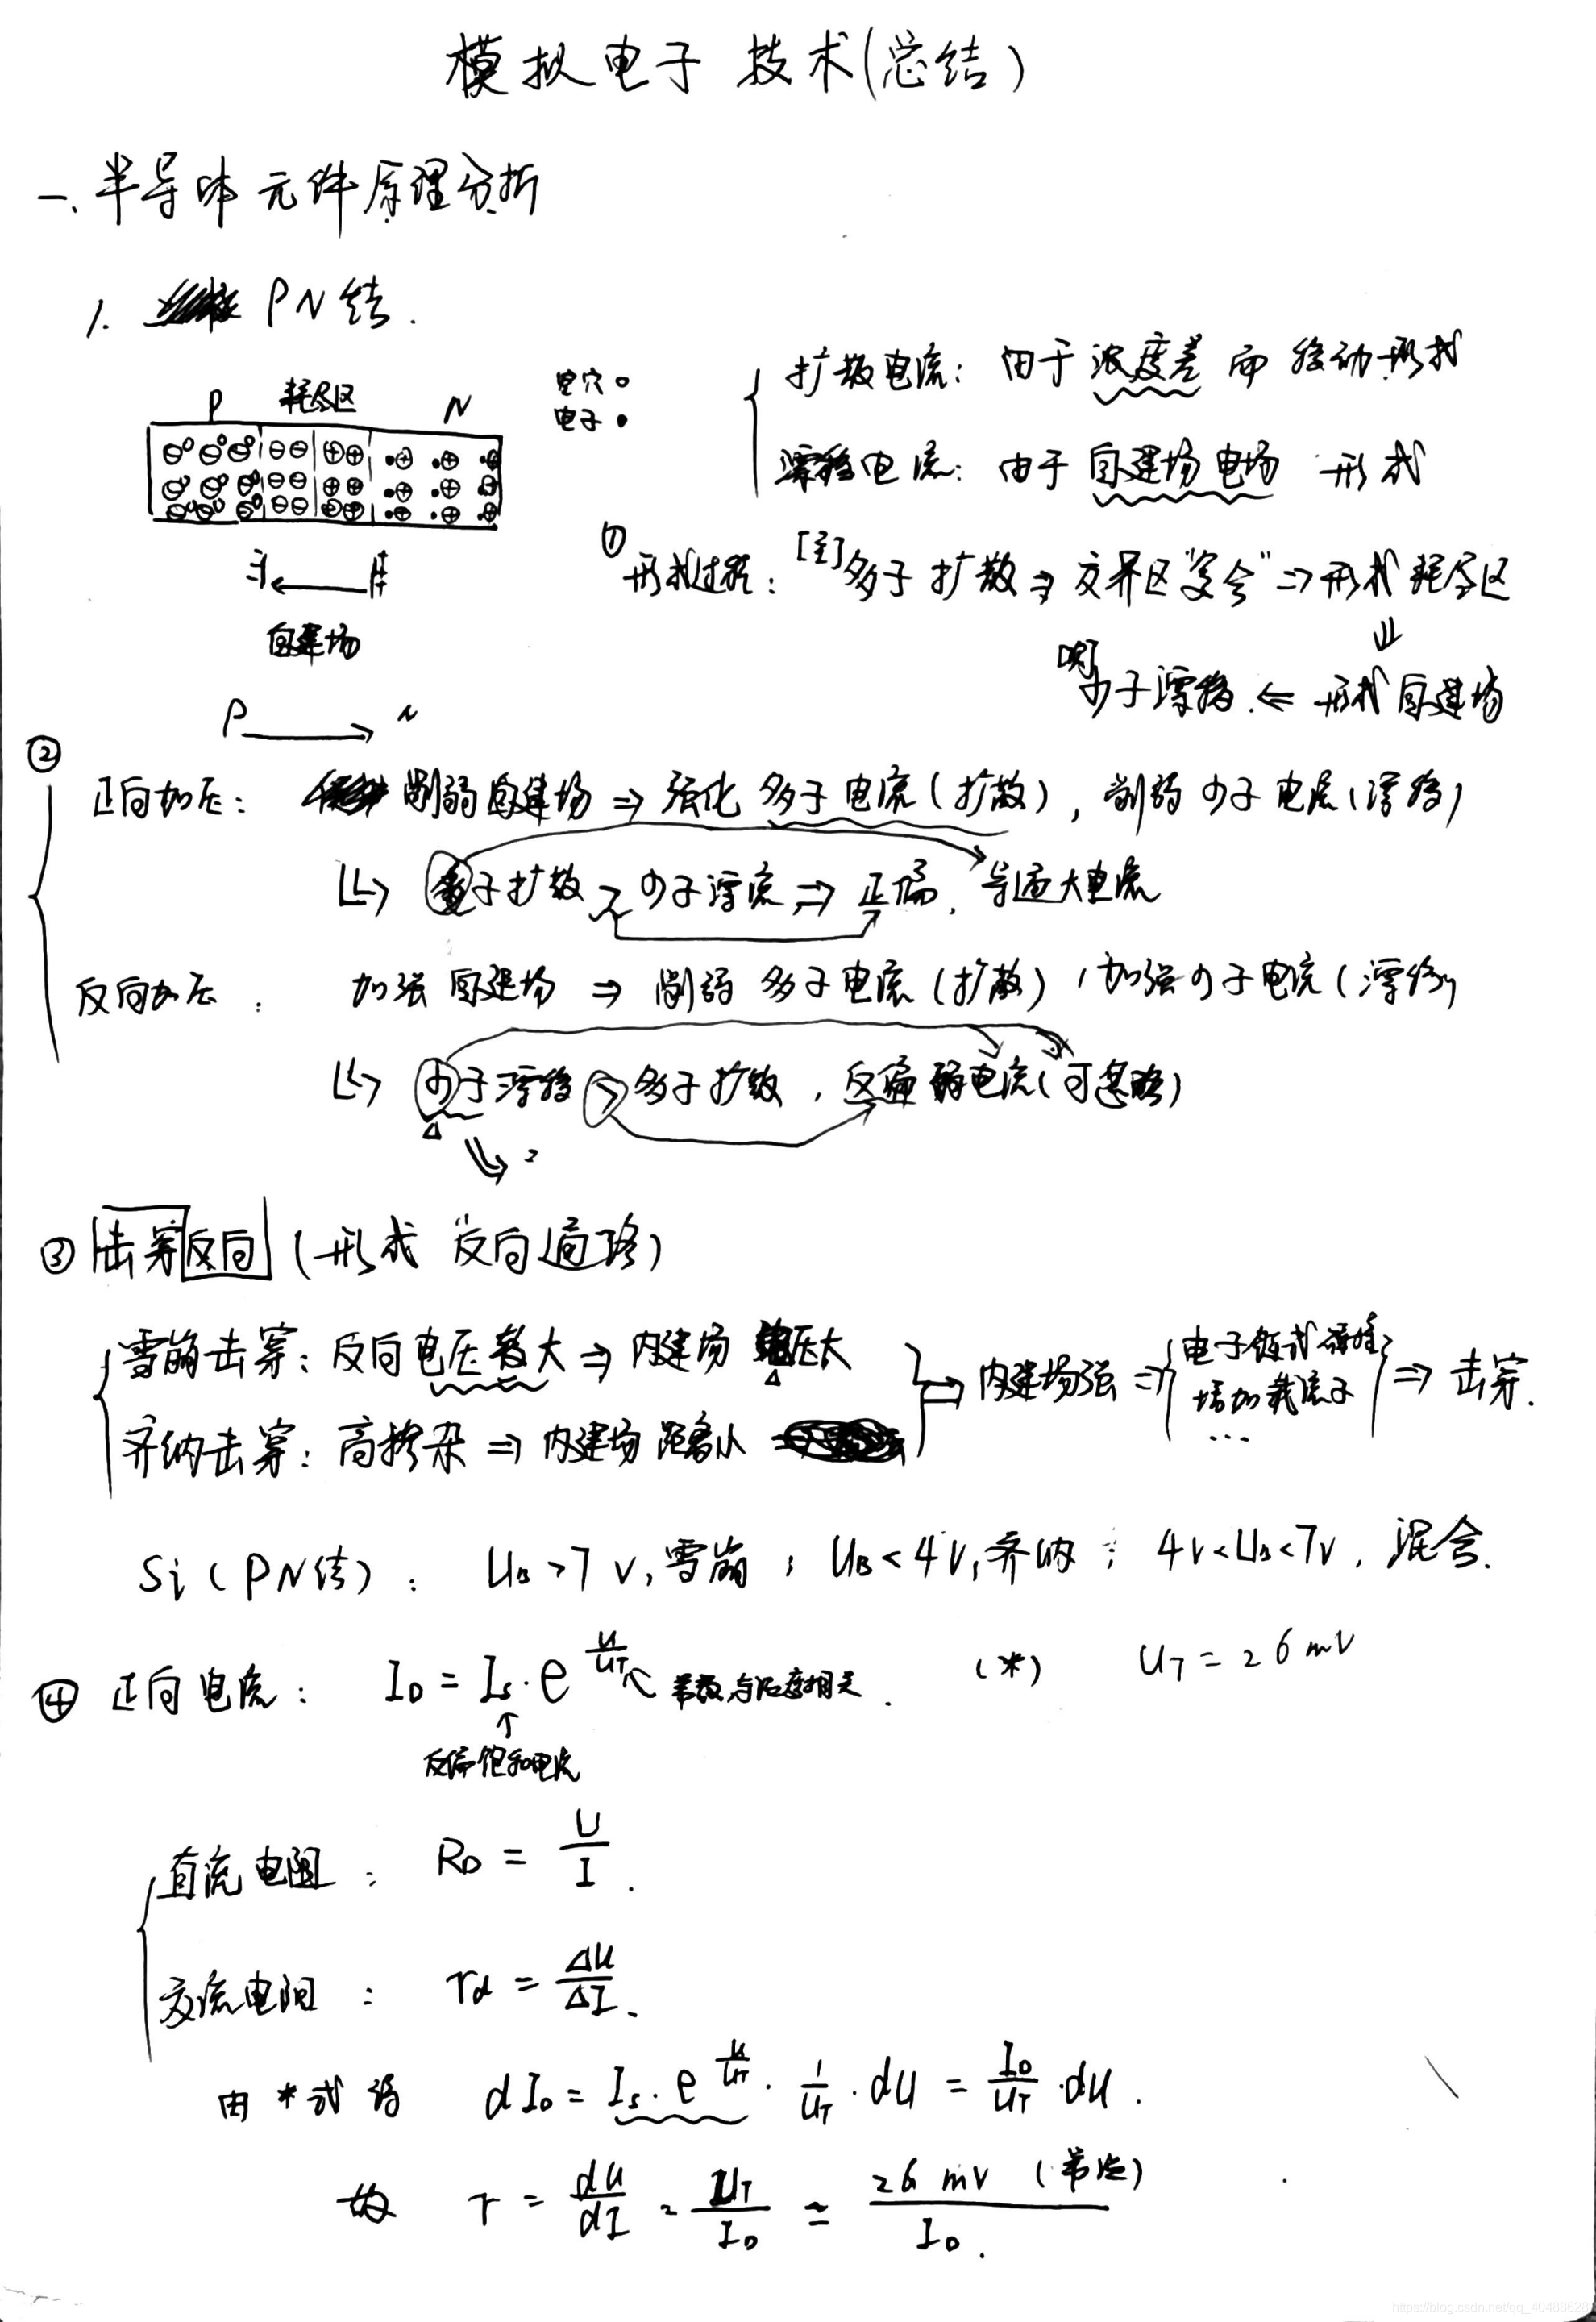 模拟电子技术(总结)
一.半导体元件原理分析
1. PN结.
P 耗尽区 N
空穴
电子
扩散电流: 由于浓度差而移动形成
漂移电流: 由于自建场电场 形成
自建场
P → N
① 形成过程: [主]多子扩散 ⇒ 交界区"复合" ⇒ 形成耗尽区
⇓
少子漂移. ⇐ 形成自建场
②
正向加压: 削弱自建场 ⇒ 强化多子电流(扩散), 削弱少子电流(漂移)
↳ 多子扩散 > 少子漂流 ⇒ 正偏, 导通大电流
反向加压: 加强自建场 ⇒ 削弱多子电流(扩散), 加强少子电流(漂移)
↳ 少子漂移 > 多子扩散, 反偏弱电流(可忽略)
③ 击穿反向 (形成"反向通路)
雪崩击穿: 反向电压较大 ⇒ 内建场 压大
齐纳击穿: 高掺杂 ⇒ 内建场距离小
⇒ 内建场强 ⇒ { 电子链式碰撞
增加载流子
... } ⇒ 击穿.
Si (PN结): UB > 7V, 雪崩; UB < 4V, 齐纳; 4V < UB < 7V, 混合.
④ 正向电流: ID = Is · e^(u/UT) 常数与温度相关. (*) UT = 26mV
↑
反偏饱和电流
直流电阻: RD = U/I.
交流电阻: rd = ΔU/ΔI.
由 * 式得 dID = Is · e^(u/UT) · 1/UT · du = ID/UT · du.
故 r = du/dI = UT/ID ≃ 26mV (常温)/ID.
https://blog.csdn.net/qq_40488628